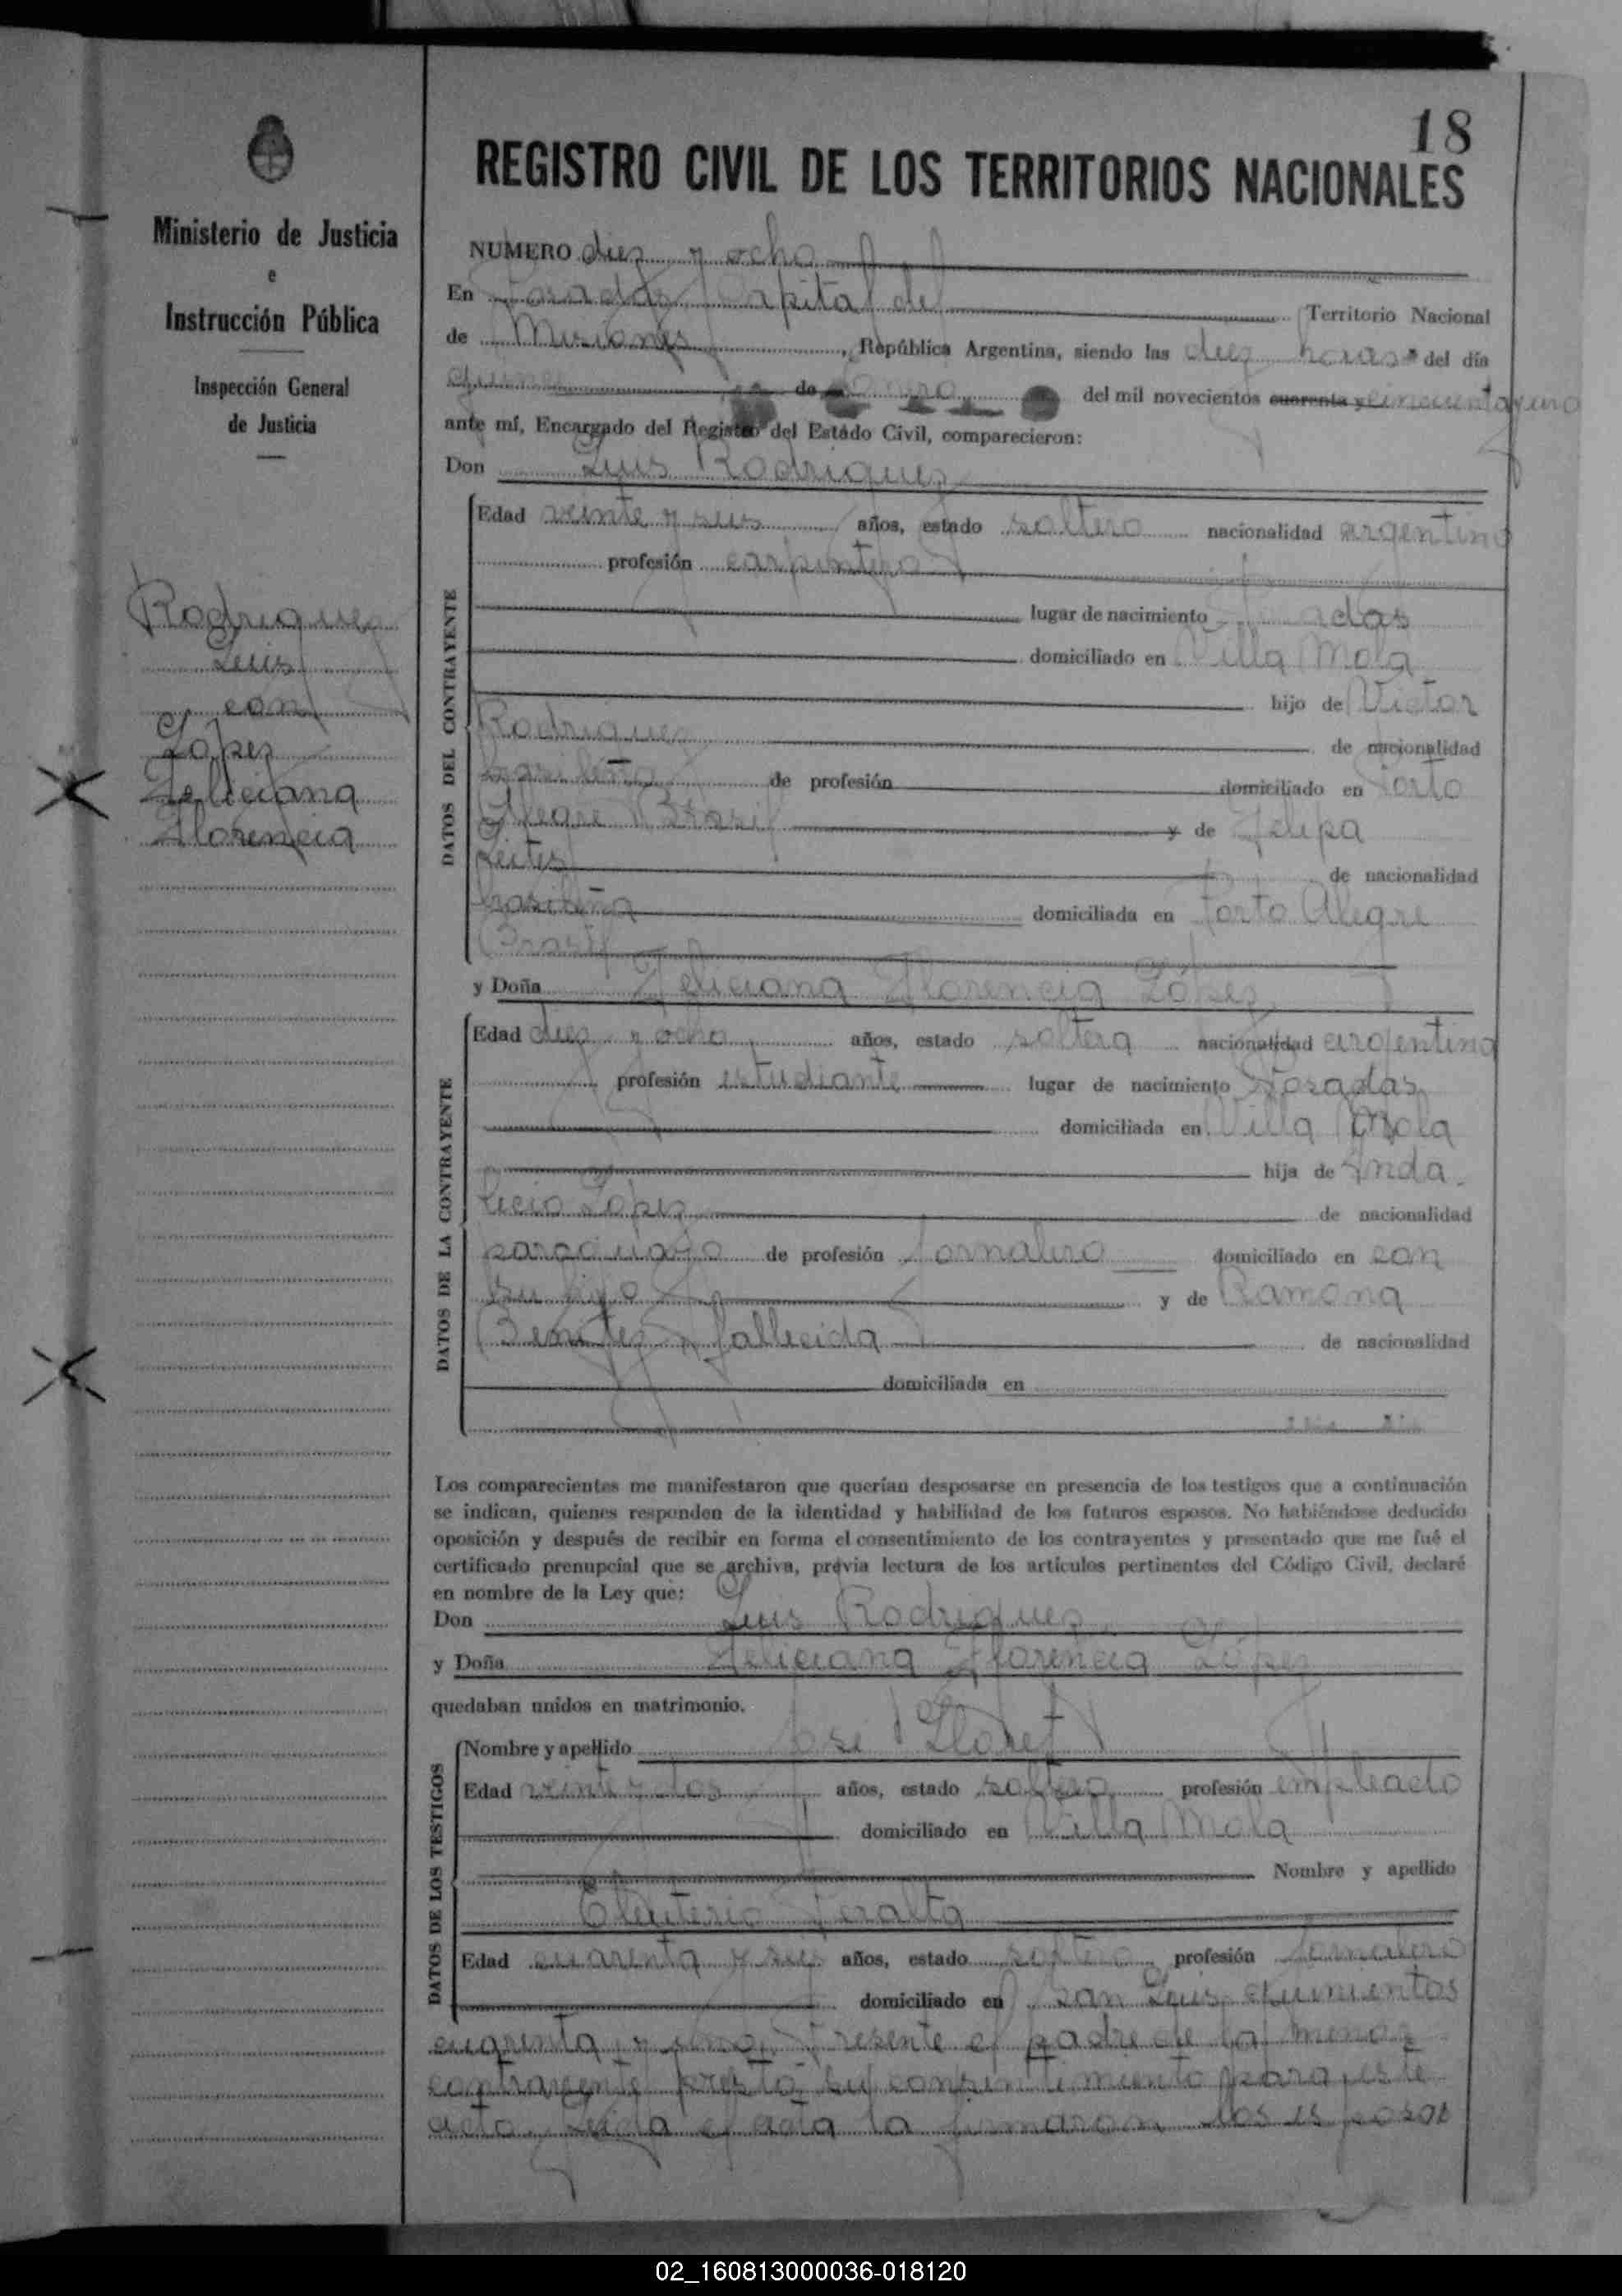 18
REGISTRO CIVIL DE LOS TERRITORIOS NACIONALES
Ministerio de Justicia
e
Instrucción Pública
Inspección General
de Justicia
Rodriguez
Luis
con
López
Feliciana
Florencia
NUMERO diez y ocho
En Posadas Capital del Territorio Nacional
de Misiones, República Argentina, siendo las diez horas del día
quince de Enero del mil novecientos cuarenta y cincuenta y uno
ante mí, Encargado del Registro del Estado Civil, comparecieron:
Don Luis Rodriguez
DATOS DEL CONTRAYENTE
Edad veinte y seis años, estado soltero nacionalidad argentino
profesión carpintero
lugar de nacimiento Posadas
domiciliado en Villa Mola
hijo de Victor
Rodriguez de nacionalidad
brasileño de profesión domiciliado en Porto
Alegre Brasil y de Felipa
Leites de nacionalidad
brasileña domiciliada en Porto Alegre
Brasil
y Doña Feliciana Florencia López
DATOS DE LA CONTRAYENTE
Edad diez y ocho años, estado soltera nacionalidad argentina
profesión estudiante lugar de nacimiento Posadas
domiciliada en Villa Mola
hija de Anda-
lecio López de nacionalidad
paraguayo de profesión Jornalero domiciliado en con
su hija y de Ramona
Benitez fallecida de nacionalidad
domiciliada en
Los comparecientes me manifestaron que querían desposarse en presencia de los testigos que a continuación
se indican, quienes responden de la identidad y habilidad de los futuros esposos. No habiéndose deducido
oposición y después de recibir en forma el consentimiento de los contrayentes y presentado que me fué el
certificado prenupcial que se archiva, prévia lectura de los artículos pertinentes del Código Civil, declaré
en nombre de la Ley que:
Don Luis Rodriguez
y Doña Feliciana Florencia López
quedaban unidos en matrimonio.
DATOS DE LOS TESTIGOS
Nombre y apellido José Lloret
Edad veinte y dos años, estado soltero profesión empleado
domiciliado en Villa Mola
Nombre y apellido
Eleuterio Peralta
Edad cuarenta y seis años, estado soltero profesión Jornalero
domiciliado en San Luis quinientos
cuarenta y uno. Presente el padre de la menor
contrayente prestó su consentimiento para este
acto. Leída el acta la firmaron los esposos
02_160813000036-018120